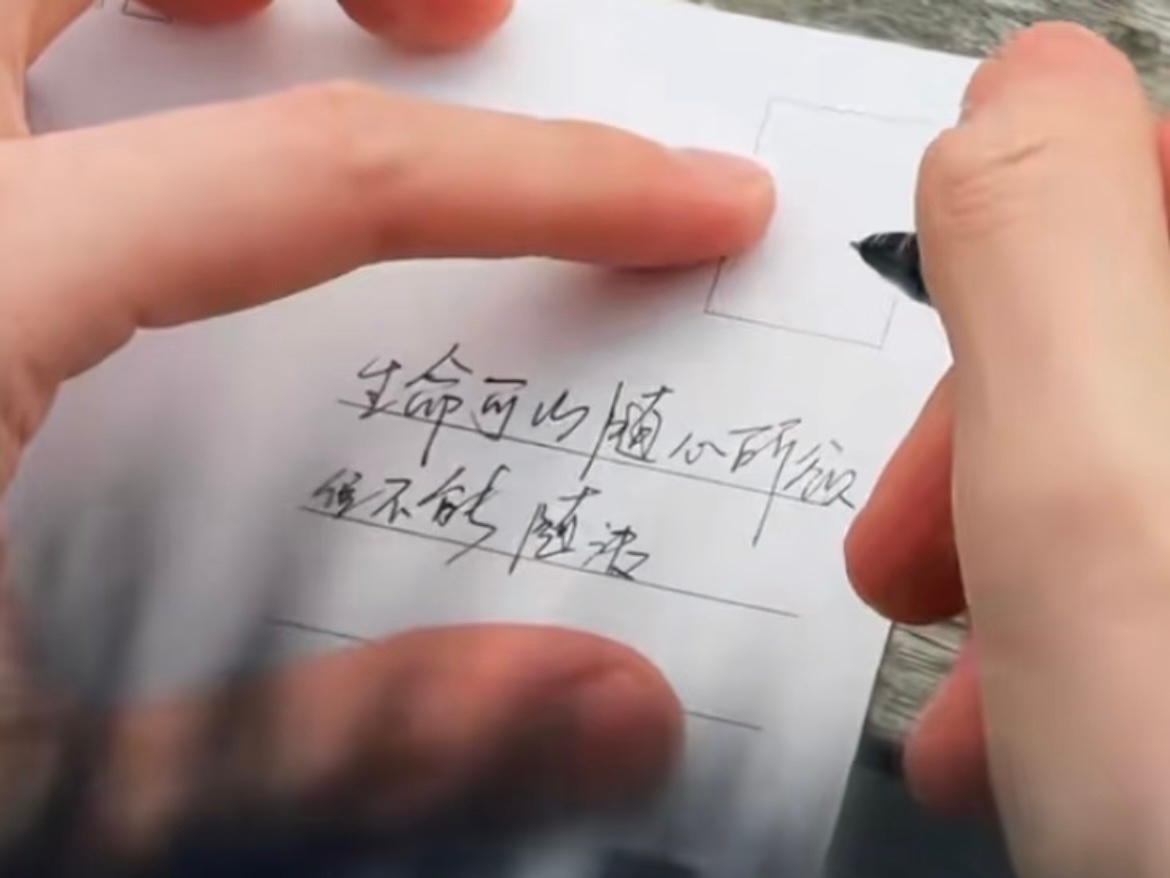 生命可以随心所欲
但不能随波